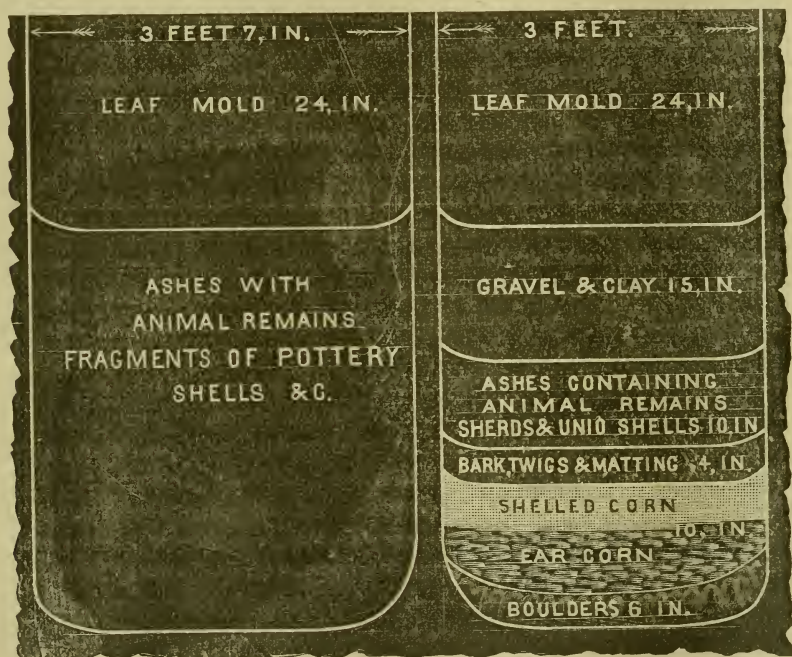 3 FEET 7, IN.
LEAF MOLD 24, IN.
ASHES WITH
ANIMAL REMAINS
FRAGMENTS OF POTTERY
SHELLS &C.
3 FEET.
LEAF MOLD 24, IN.
GRAVEL & CLAY 15, IN.
ASHES CONTAINING
ANIMAL REMAINS
SHERDS & UNIO SHELLS 10, IN
BARK, TWIGS & MATTING 4, IN.
SHELLED CORN
10, IN.
EAR CORN
BOULDERS 6 IN.